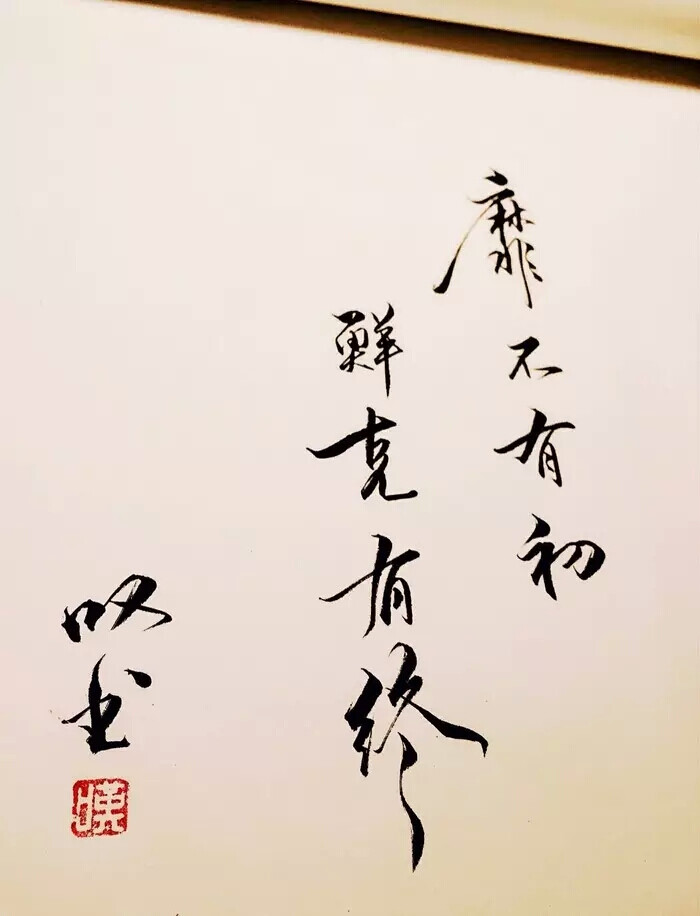 靡不有初
鲜克有终
叹书